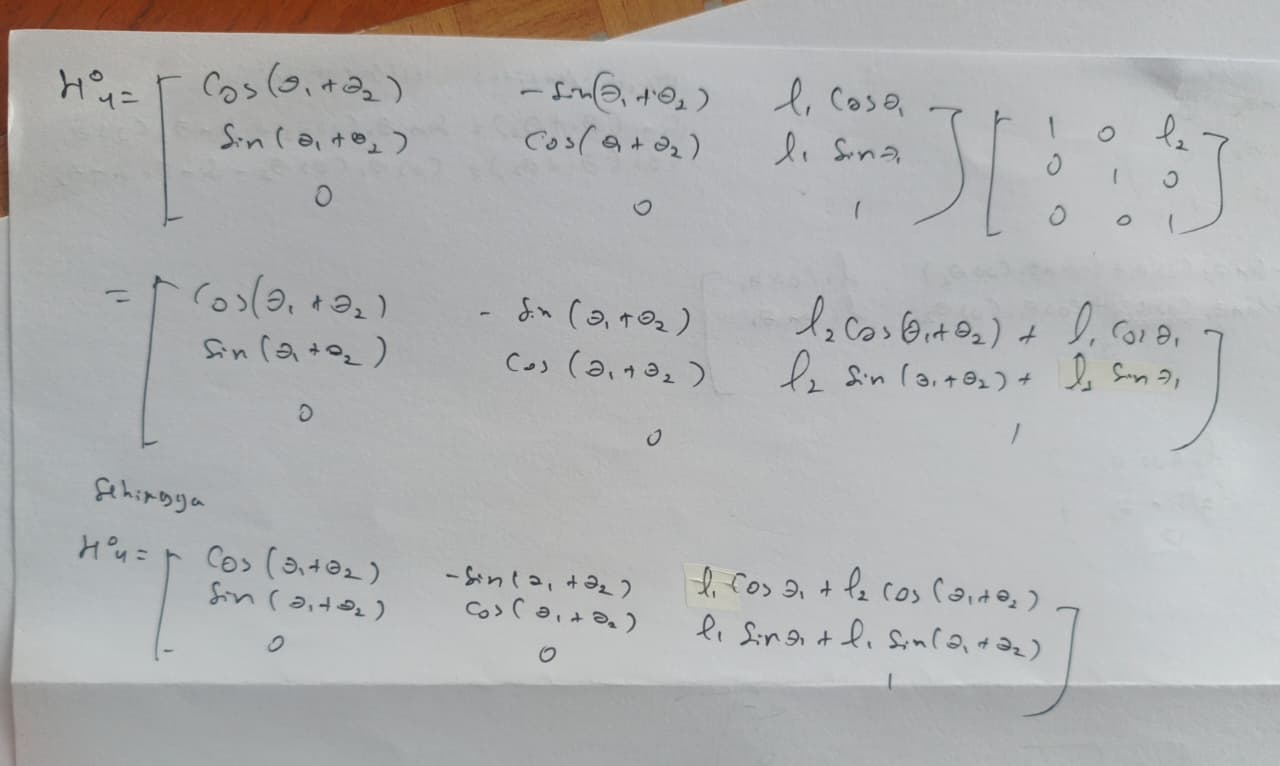 H⁰₄ = [ Cos(θ₁+θ₂) -Sin(θ₁+θ₂) l₁ Cosθ₁ ] [ 1 0 l₂ ]
Sin(θ₁+θ₂) Cos(θ₁+θ₂) l₁ Sinθ₁ 0 1 0
0 0 1 0 0 1
= [ Cos(θ₁+θ₂) - Sin(θ₁+θ₂) l₂ Cos(θ₁+θ₂) + l₁ Cosθ₁ ]
Sin(θ₁+θ₂) Cos(θ₁+θ₂) l₂ Sin(θ₁+θ₂) + l₁ Sinθ₁
0 0 1
Sehingga
H⁰₄ = [ Cos(θ₁+θ₂) -Sin(θ₁+θ₂) l₁ Cosθ₁ + l₂ Cos(θ₁+θ₂) ]
Sin(θ₁+θ₂) Cos(θ₁+θ₂) l₁ Sinθ₁ + l₁ Sin(θ₁+θ₂)
0 0 1